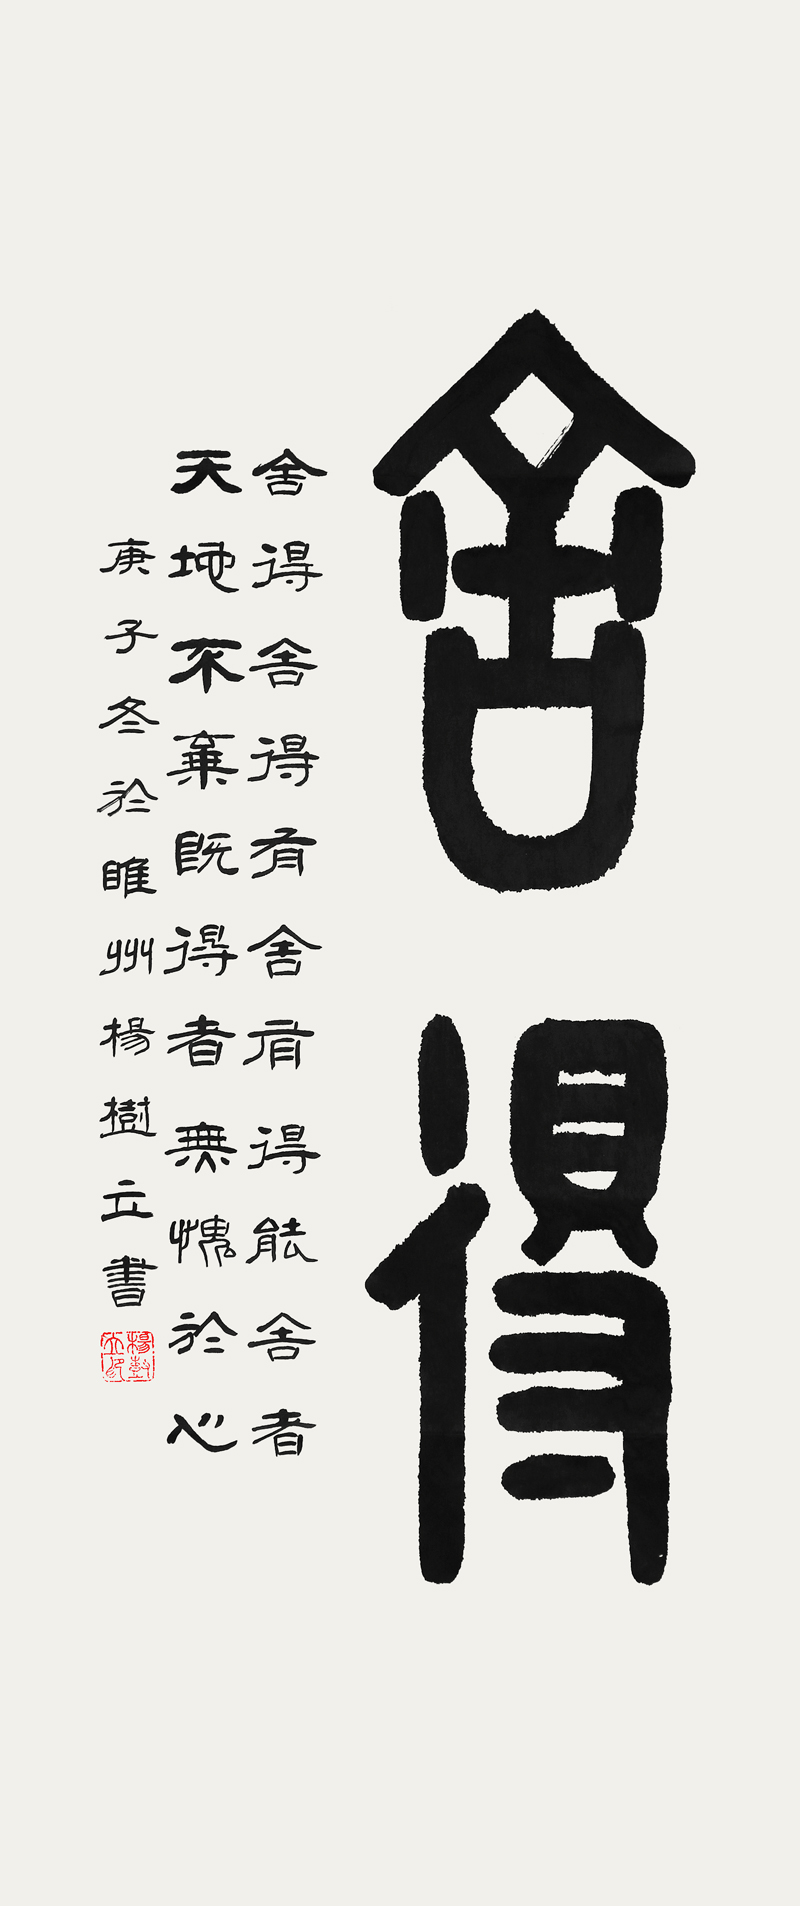 舍得
舍得舍得有舍有得能舍者
天地不棄既得者無愧於心
庚子冬於睢州楊樹立書
楊樹立印